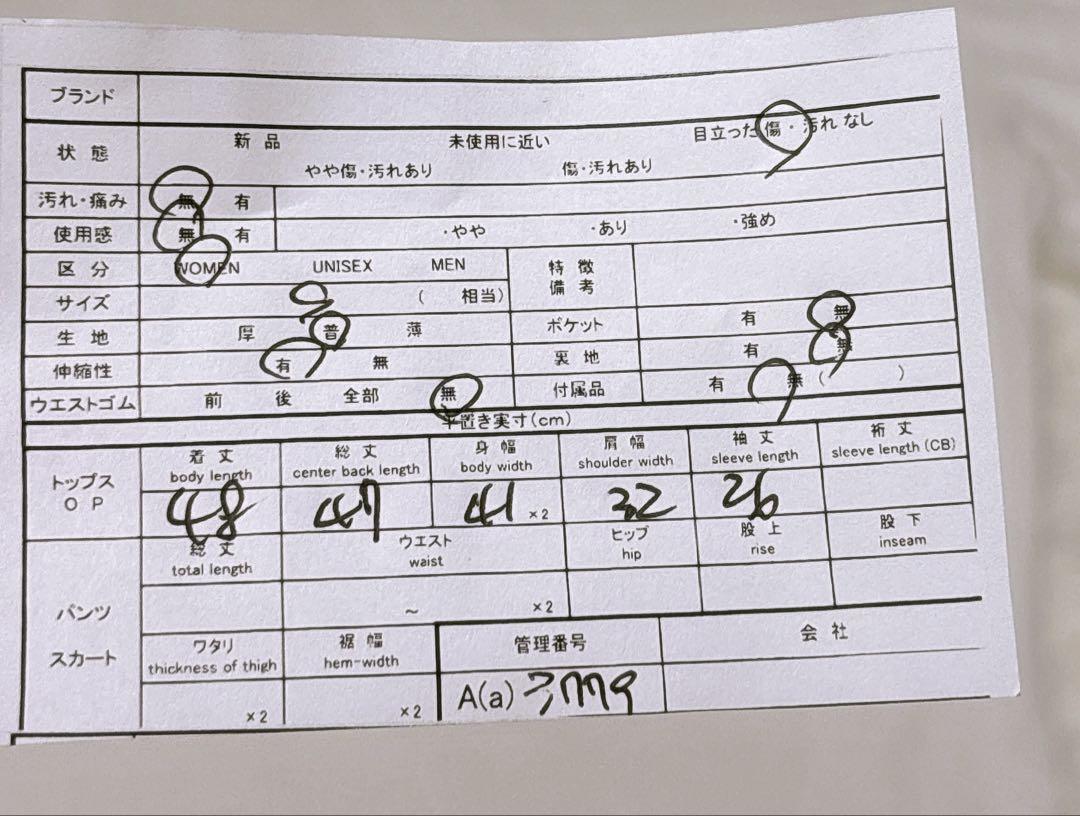 ブランド
状態 新品 未使用に近い 目立った傷・汚れなし
やや傷・汚れあり 傷・汚れあり
汚れ・痛み 無 有
使用感 無 有 ・やや ・あり ・強め
区分 WOMEN UNISEX MEN 特徴
備考
サイズ ( 相当)
生地 厚 普 薄 ポケット 有 無
伸縮性 有 無 裏地 有 無
ウエストゴム 前 後 全部 無 付属品 有 無 ( )
平置き実寸(cm)
トップス
OP
着丈 総丈 身幅 肩幅 袖丈 裄丈
body length center back length body width shoulder width sleeve length sleeve length (CB)
48 47 41 ×2 32 26
パンツ
スカート
総丈 ウエスト ヒップ 股上 股下
total length waist hip rise inseam
~ ×2
ワタリ 裾幅 管理番号 会社
thickness of thigh hem-width
×2 ×2 A(a)